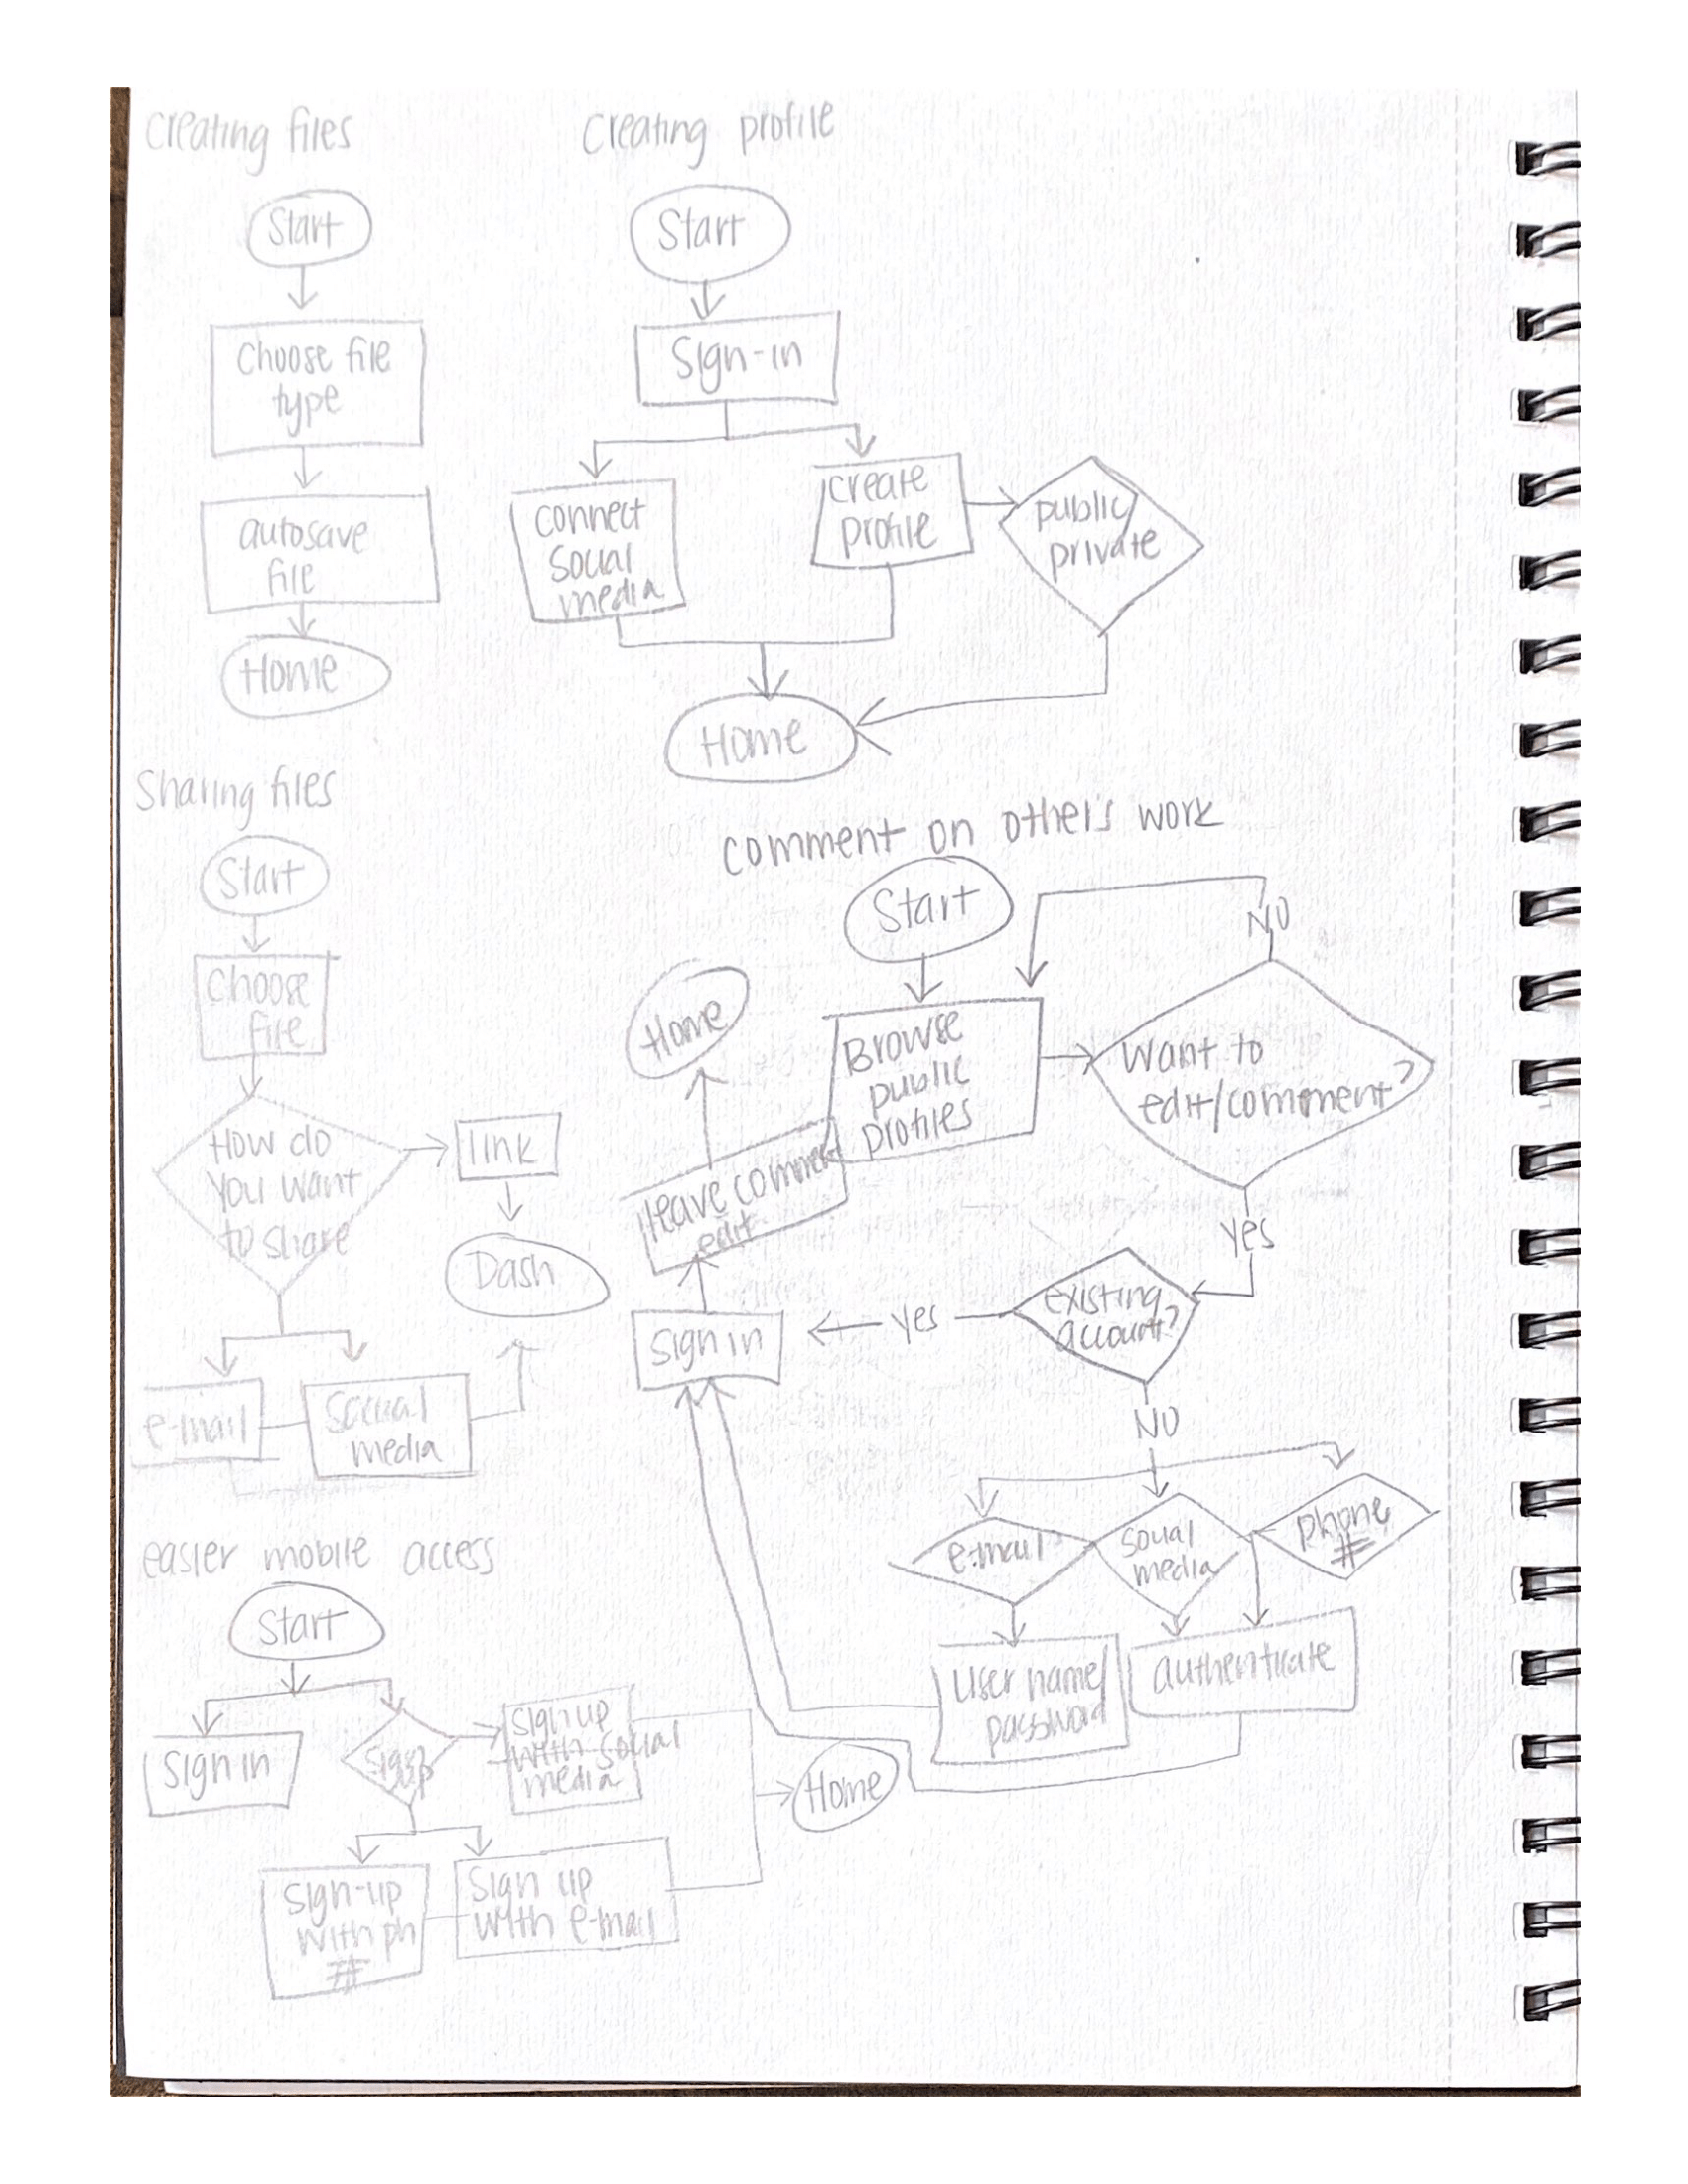 Creating files
Start
Choose file
type
autosave
file
Home
Creating profile
Start
Sign-in
connect
social
media
create
profile
public/
private
Home
Sharing files
Start
Choose
file
How do
you want
to share
link
Dash
e-mail
social
media
comment on other's work
Start
Browse
public
profiles
Want to
edit/comment?
NO
yes
existing
account?
yes
sign in
leave comment
edit
Home
NO
e-mail
social
media
phone
#
user name/
password
authenticate
easier mobile access
Start
Sign in
sign up
with social
media
Sign-up
with ph
#
Sign up
with e-mail
Home